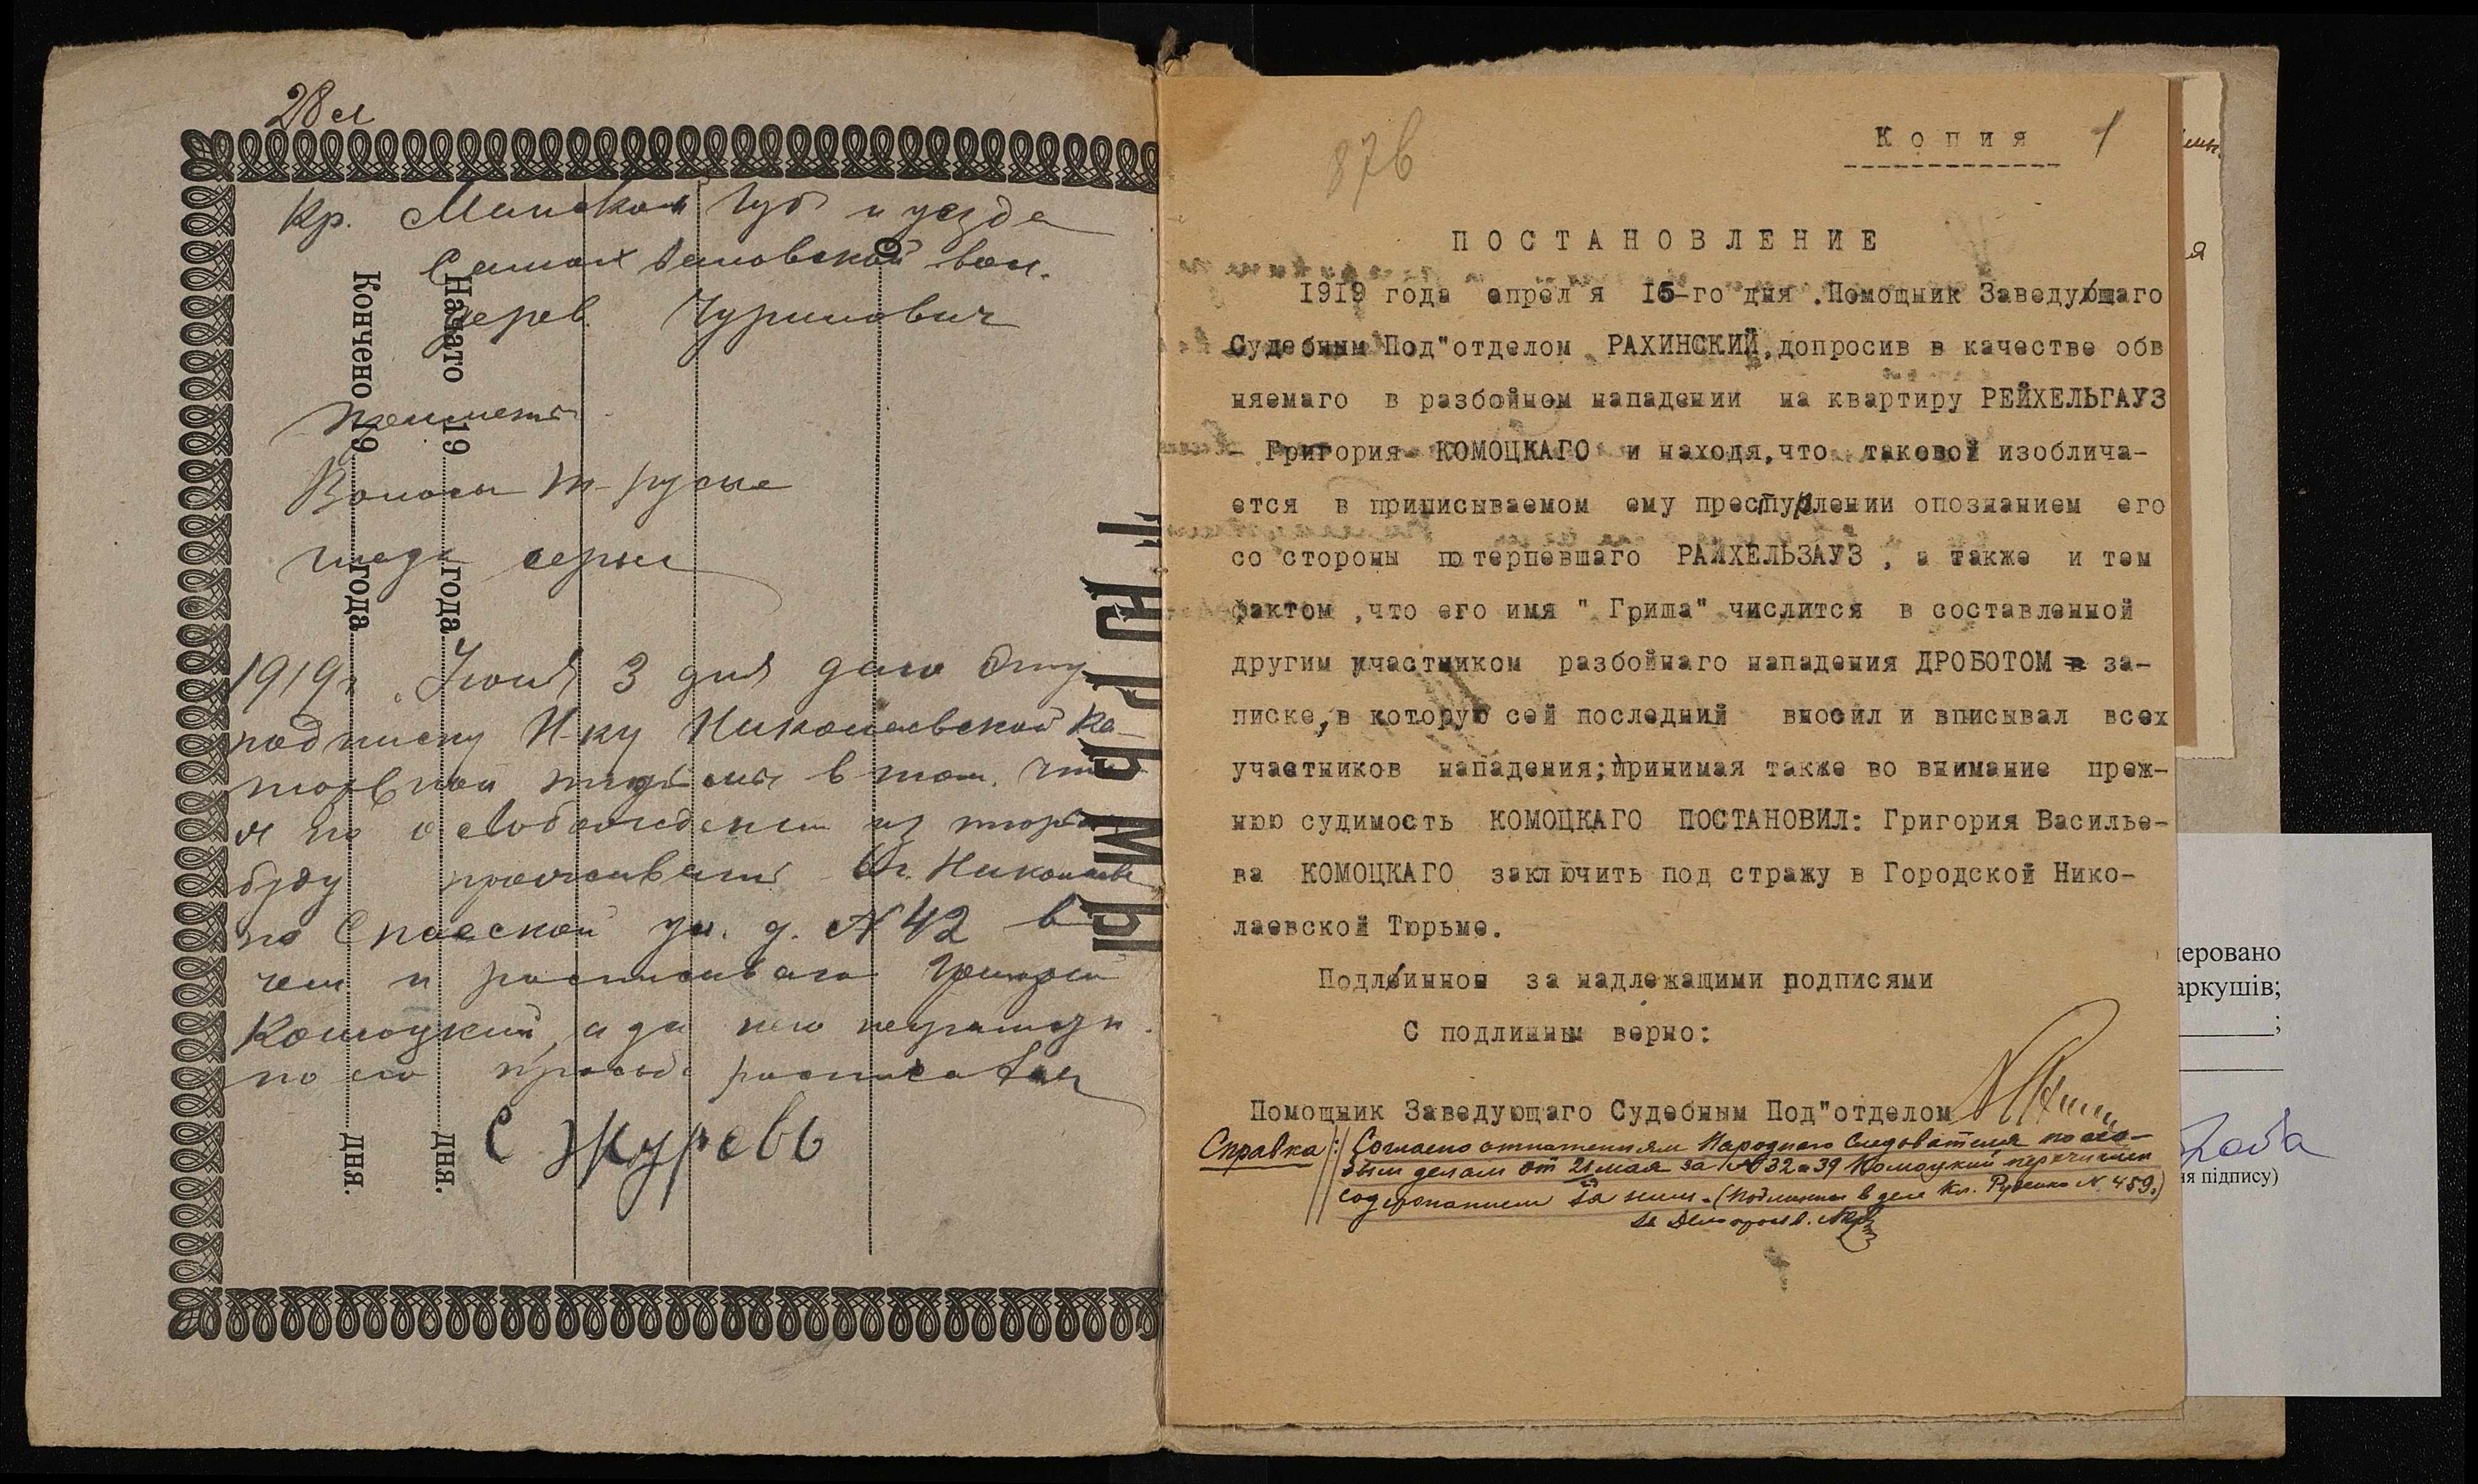 28 л
Кр. Минской Губ и уезда
Самохваловской вол.
дерев. Чуриловичи
Начато 19 года дня.
Кончено 19 года дня.
ТЮРЬМЫ
Волосы т-русые
серые
1919 г. Июня 3 дня дано эту
подписку Н-ку Николаевской Ка-
торжной тюрьмы в том, что
я по освобождении из тюрьмы
буду проживать Гг. Николаев
по Спасской ул. д. № 42 в
чем и росписываюсь Григорий
Комоцкий, а за него неграмотн.
по его прозьбе росписался
С Журавь
87в
Копия 1
ПОСТАНОВЛЕНИЕ
1919 года апреля 15-го дня .Помощник Заведующаго
Судебным Под"отделом РАХИНСКИЙ,допросив в качестве обв
няемаго в разбойном нападении на квартиру РЕЙХЕЛЬГАУЗ
Григория КОМОЦКАГО и находя,что таковой изоблича-
ется в приписываемом ему преступлении опознанием его
со стороны потерпевшаго РАЙХЕЛЬЗАУЗ , а также и тем
фактом ,что его имя " Гриша" числится в составленной
другим участником разбойнаго нападения ДРОБОТОМ в за-
писке,в которую сей последний вносил и вписывал всех
участников нападения;принимая также во внимание преж-
нюю судимость КОМОЦКАГО ПОСТАНОВИЛ: Григория Василье-
ва КОМОЦКАГО заключить под стражу в Городской Нико-
лаевской Тюрьме.
Подлинное за надлежащими подписями
С подлинным верно:
Помощник Заведующаго Судебным Под"отделом
Справка: Согласно отношениям Народнаго Следователя по осо-
бым делам от 21 мая за № 32 и 39 Комоцкий перечислен
содержанием за ним. (Подлинныя в деле Кл. Руденко № 459.)
За Делопроизв.
меровано
аркушів;
ія підпису)